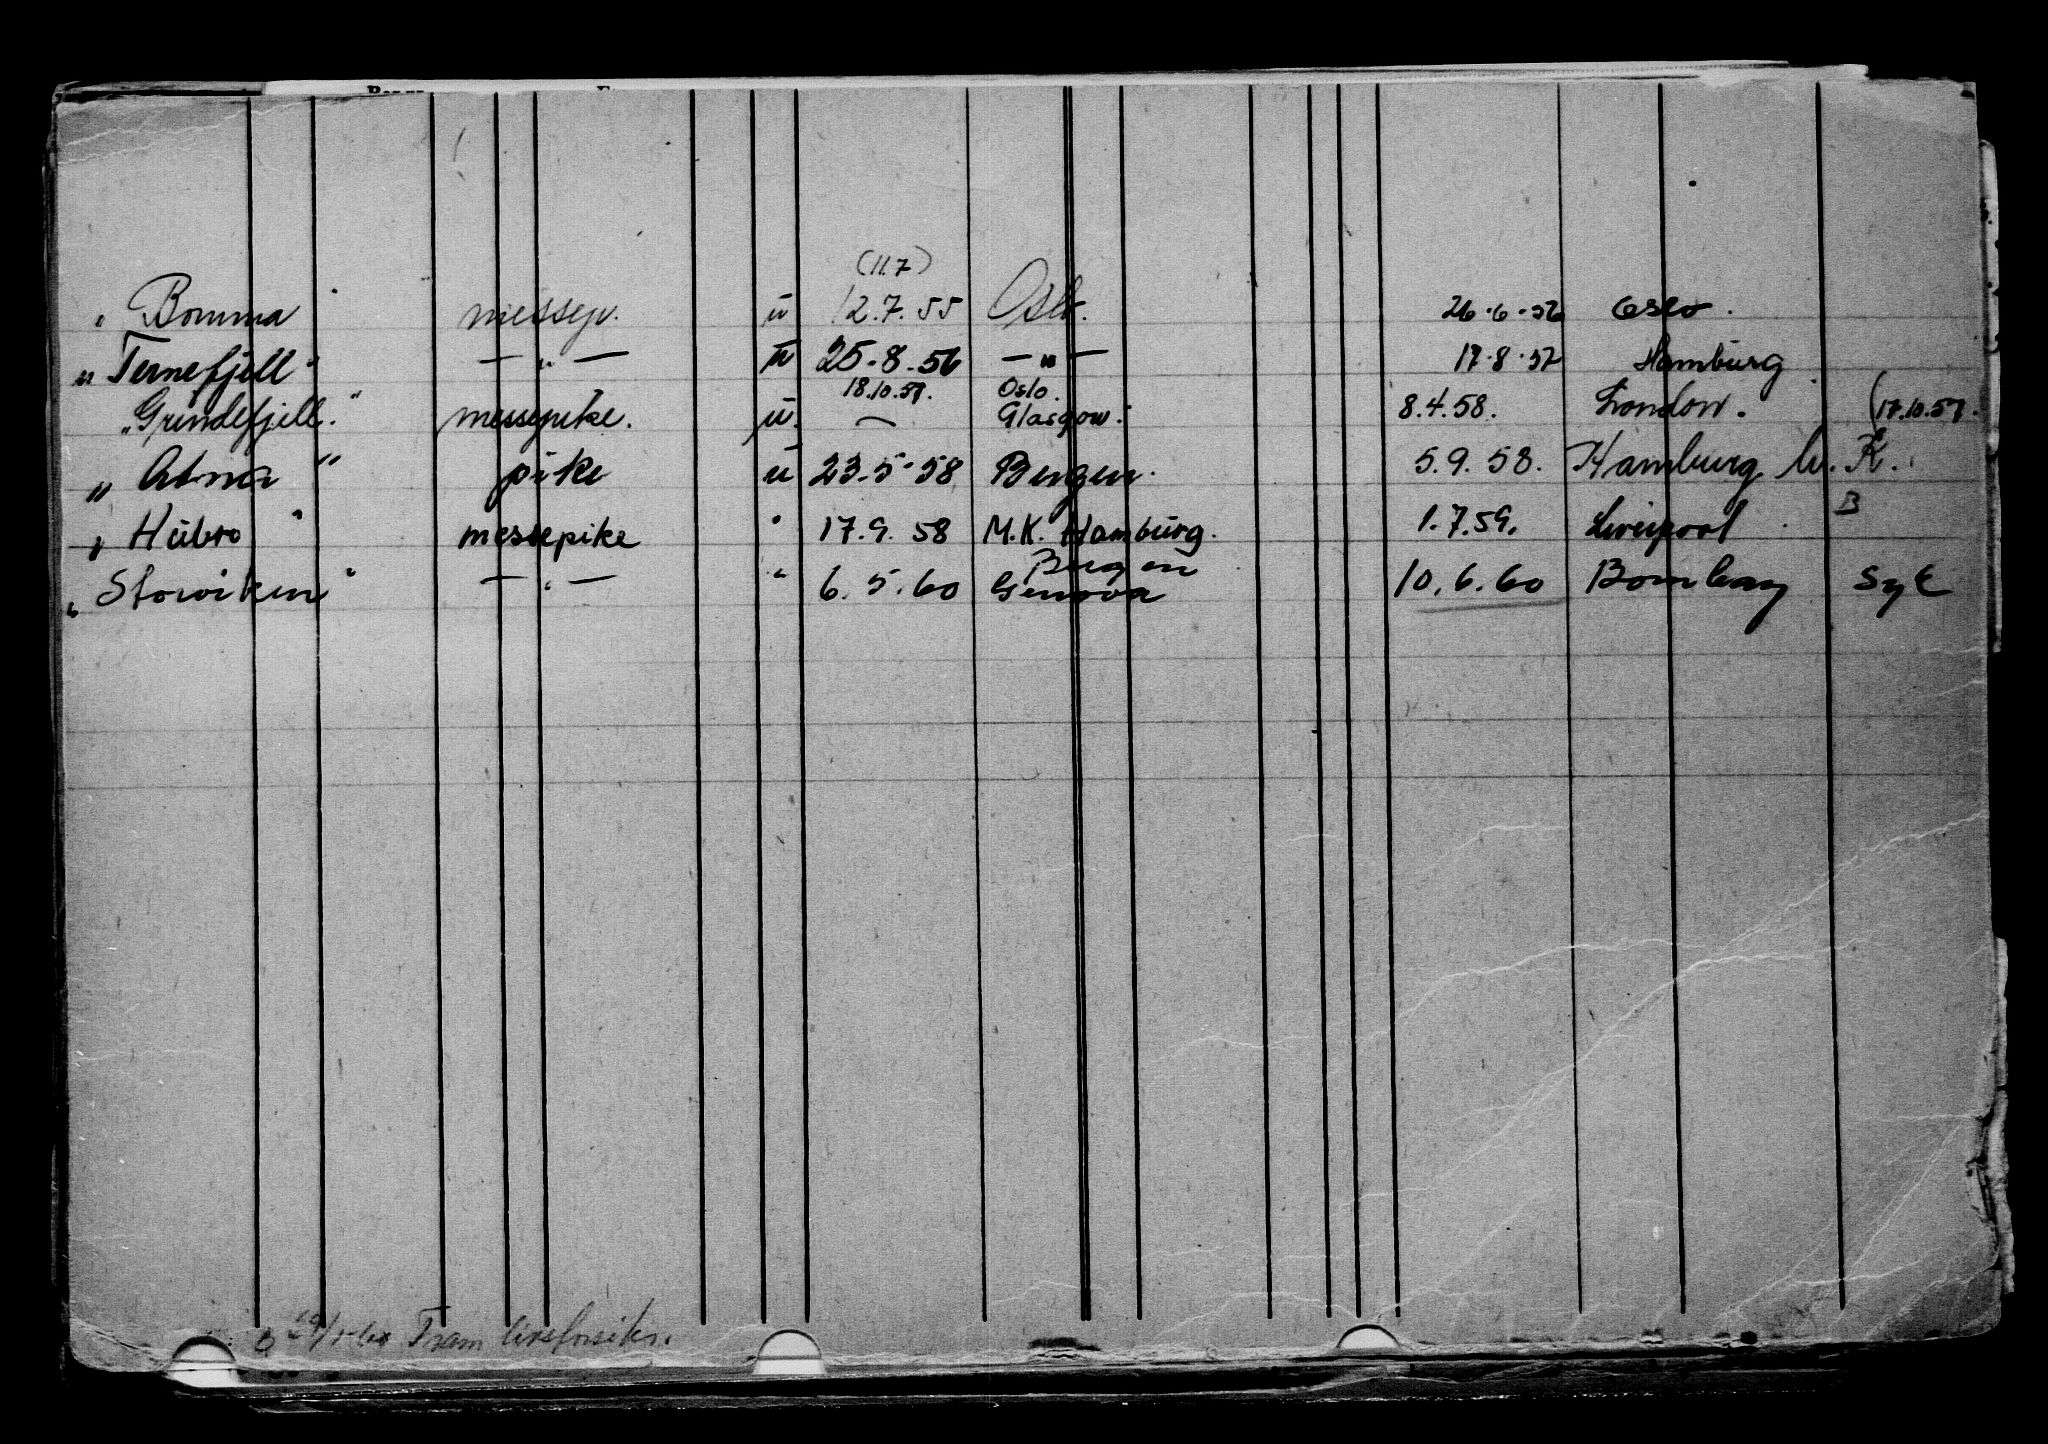 (11.7)
" Bomma " messep. u 12.7.55 Oslo. 26.6.56 Oslo.
" Ternefjell " — " — u 25.8.56 — " — 17.8.57 Hamburg
18.10.57. Oslo.
"Grindefjell." messepike. u. — Glasgow. 8.4.58. London. (17.10.57.
" Atna " pike u 23.5.58 Bergen. 5.9.58. Hamburg M. K.
" Hubro " messepike " 17.9.58 M.K. Hamburg. 1.7.59. Liverpool. B
Bergen
" Storviken " — " — " 6.5.60 Genova 10.6.60 Bombay Syk
Fram livsforsikr.